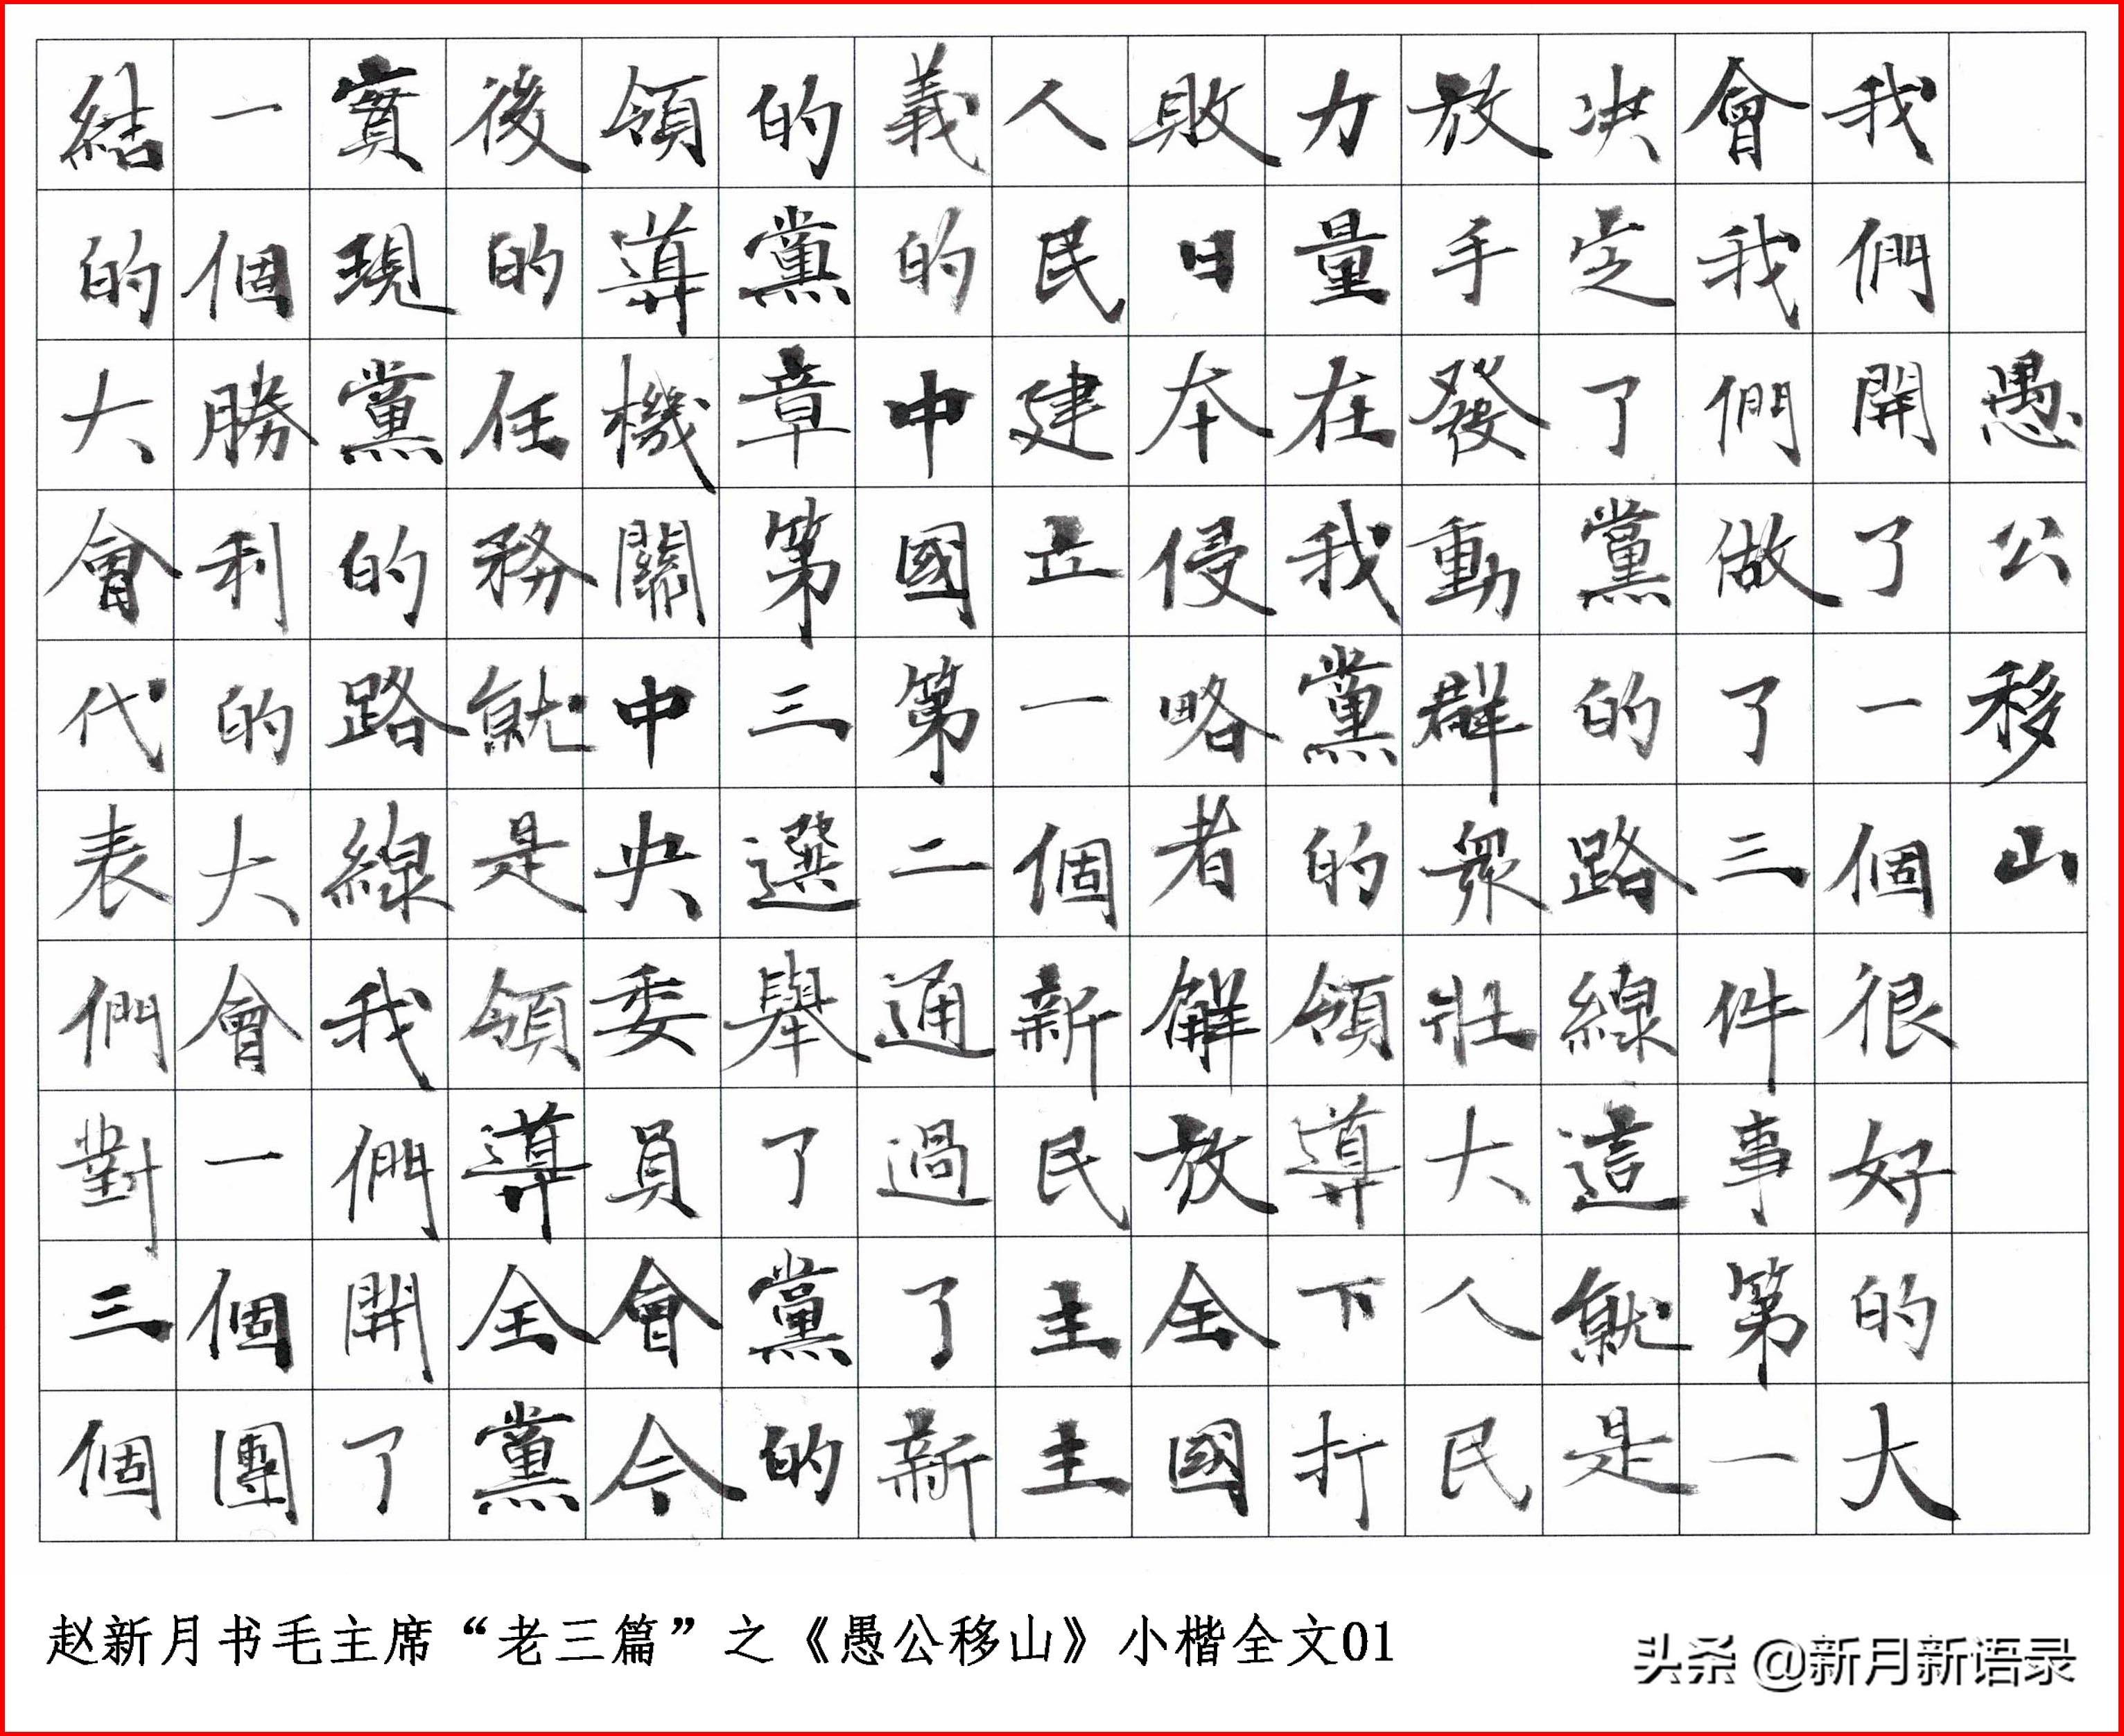 愚公移山
我們開了一個很好的大
會我們做了三件事第一
決定了黨的路線這就是
放手發動群眾壯大人民
力量在我黨的領導下打
敗日本侵略者解放全國
人民建立一個新民主主
義的中國第二通過了新
的黨章第三選舉了黨的
領導機關中央委員會今
後的任務就是領導全黨
實現黨的路線我們開了
一個勝利的大會一個團
結的大會代表們對三個
赵新月书毛主席“老三篇”之《愚公移山》小楷全文01
头条 @新月新语录